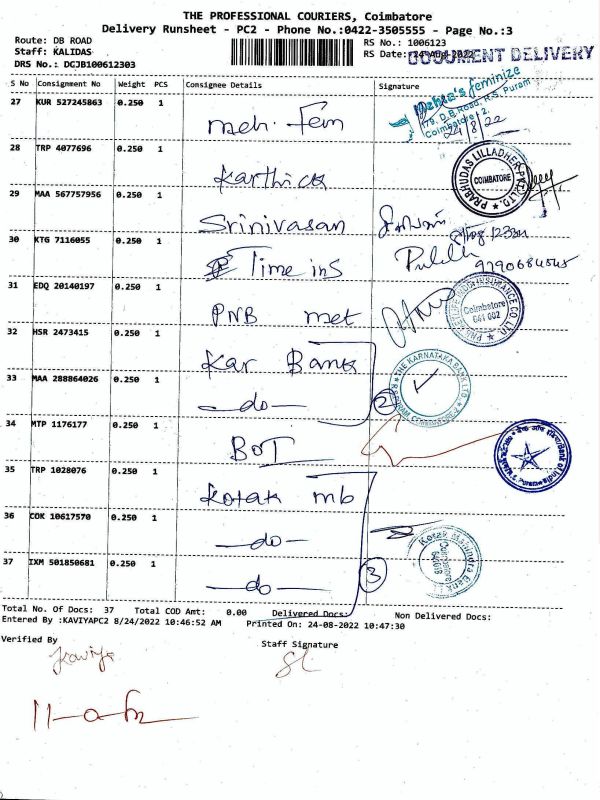 THE PROFESSIONAL COURIERS, Coimbatore
Delivery Runsheet - PC2 - Phone No.:0422-3505555 - Page No.:3
Route: DB ROAD
RS No.: 1006123
Staff: KALIDAS
RS Date: 24-Aug-2022
DOCUMENT DELIVERY
DRS No.: DGJB100612303
S No Consignment No Weight PCS Consignee Details Signature
27 KUR 527245863 0.250 1 meh. Fem
Mehta's feminize
179, D.B.Road, R.S. Puram
Coimbatore - 2.
24/8/22
28 TRP 4077696 0.250 1 Karthick
PRABHUDAS LILLADHER PVT. LTD. ★
COIMBATORE
29 MAA 567757956 0.250 1 Srinivasan
30 KTG 7116055 0.250 1 Time ins
9790684545
31 EDQ 20140197 0.250 1 PNB met
INSURANCE CO. LTD.
Coimbatore
641 002
32 HSR 2473415 0.250 1 Kar Bank
THE KARNATAKA BANK LTD
33 MAA 288864026 0.250 1 —do— 2
34 MTP 1176177 0.250 1 BOI
Bank of India
35 TRP 1028076 0.250 1 Kotak mb
36 COK 10617570 0.250 1 —do—
Kotak Mahindra Bank
37 IXM 501850681 0.250 1 —do— 3
Total No. Of Docs: 37 Total COD Amt: 0.00 Delivered Docs: Non Delivered Docs:
Entered By :KAVIYAPC2 8/24/2022 10:46:52 AM Printed On: 24-08-2022 10:47:30
Verified By
Staff Signature
Kaviya